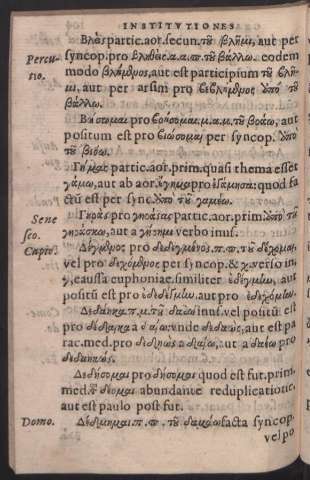 INSTITVTIONES
Βλὰς partic. aor. secun. τοῦ βλῆμι, aut per
Percu- syncop. pro βληθεὶς α.α.π. τοῦ βάλλω. eodem
tio. modo βλήμενος, aut est participium τοῦ βλῆ-
μι, aut per arsin pro βεβλημένος ὑπὸ τοῦ
βάλλω.
Βώσομαι pro βοήσομαι μ.α.μ. τοῦ βοάω, aut
positum est pro βιώσομαι per syncop. ὑπὸ
τοῦ βιόω.
Γήμας partic. aor. prim. quasi thema esset
γάμω, aut ab aor. ἔγημα pro ἐγάμησα: quod fa-
ctū est per sync. ὑπὸ τοῦ γαμέω.
Sene γηρὰς pro γηράσας partic. aor. prim. ὑπὸ τοῦ
sco. γηράσκω, aut a γήρημι verbo inus.
Cupio. Δέγμενος pro δεδεγμένος. π.π. τοῦ δέχομαι,
vel pro δεχόμενος per syncop. & χ. verso in
γ, caussa euphoniae. similiter ἐδέγμην, aut
positū est pro ἐδεδέγμην, aut pro ἐδεχόμην.
Δέδηκα π.μ. τοῦ δαίω inus. vel positū est
pro
aut est pa
rac. med. pro aut a pro
Δεδήσομαι pro δήσομαι quod est fut. prim.
med. τοῦ δέομαι abundante reduplicatione,
aut est paulo post fut.
Domo. Δέδμημαι. π.π. τοῦ δαμάω facta syncop.
vel po